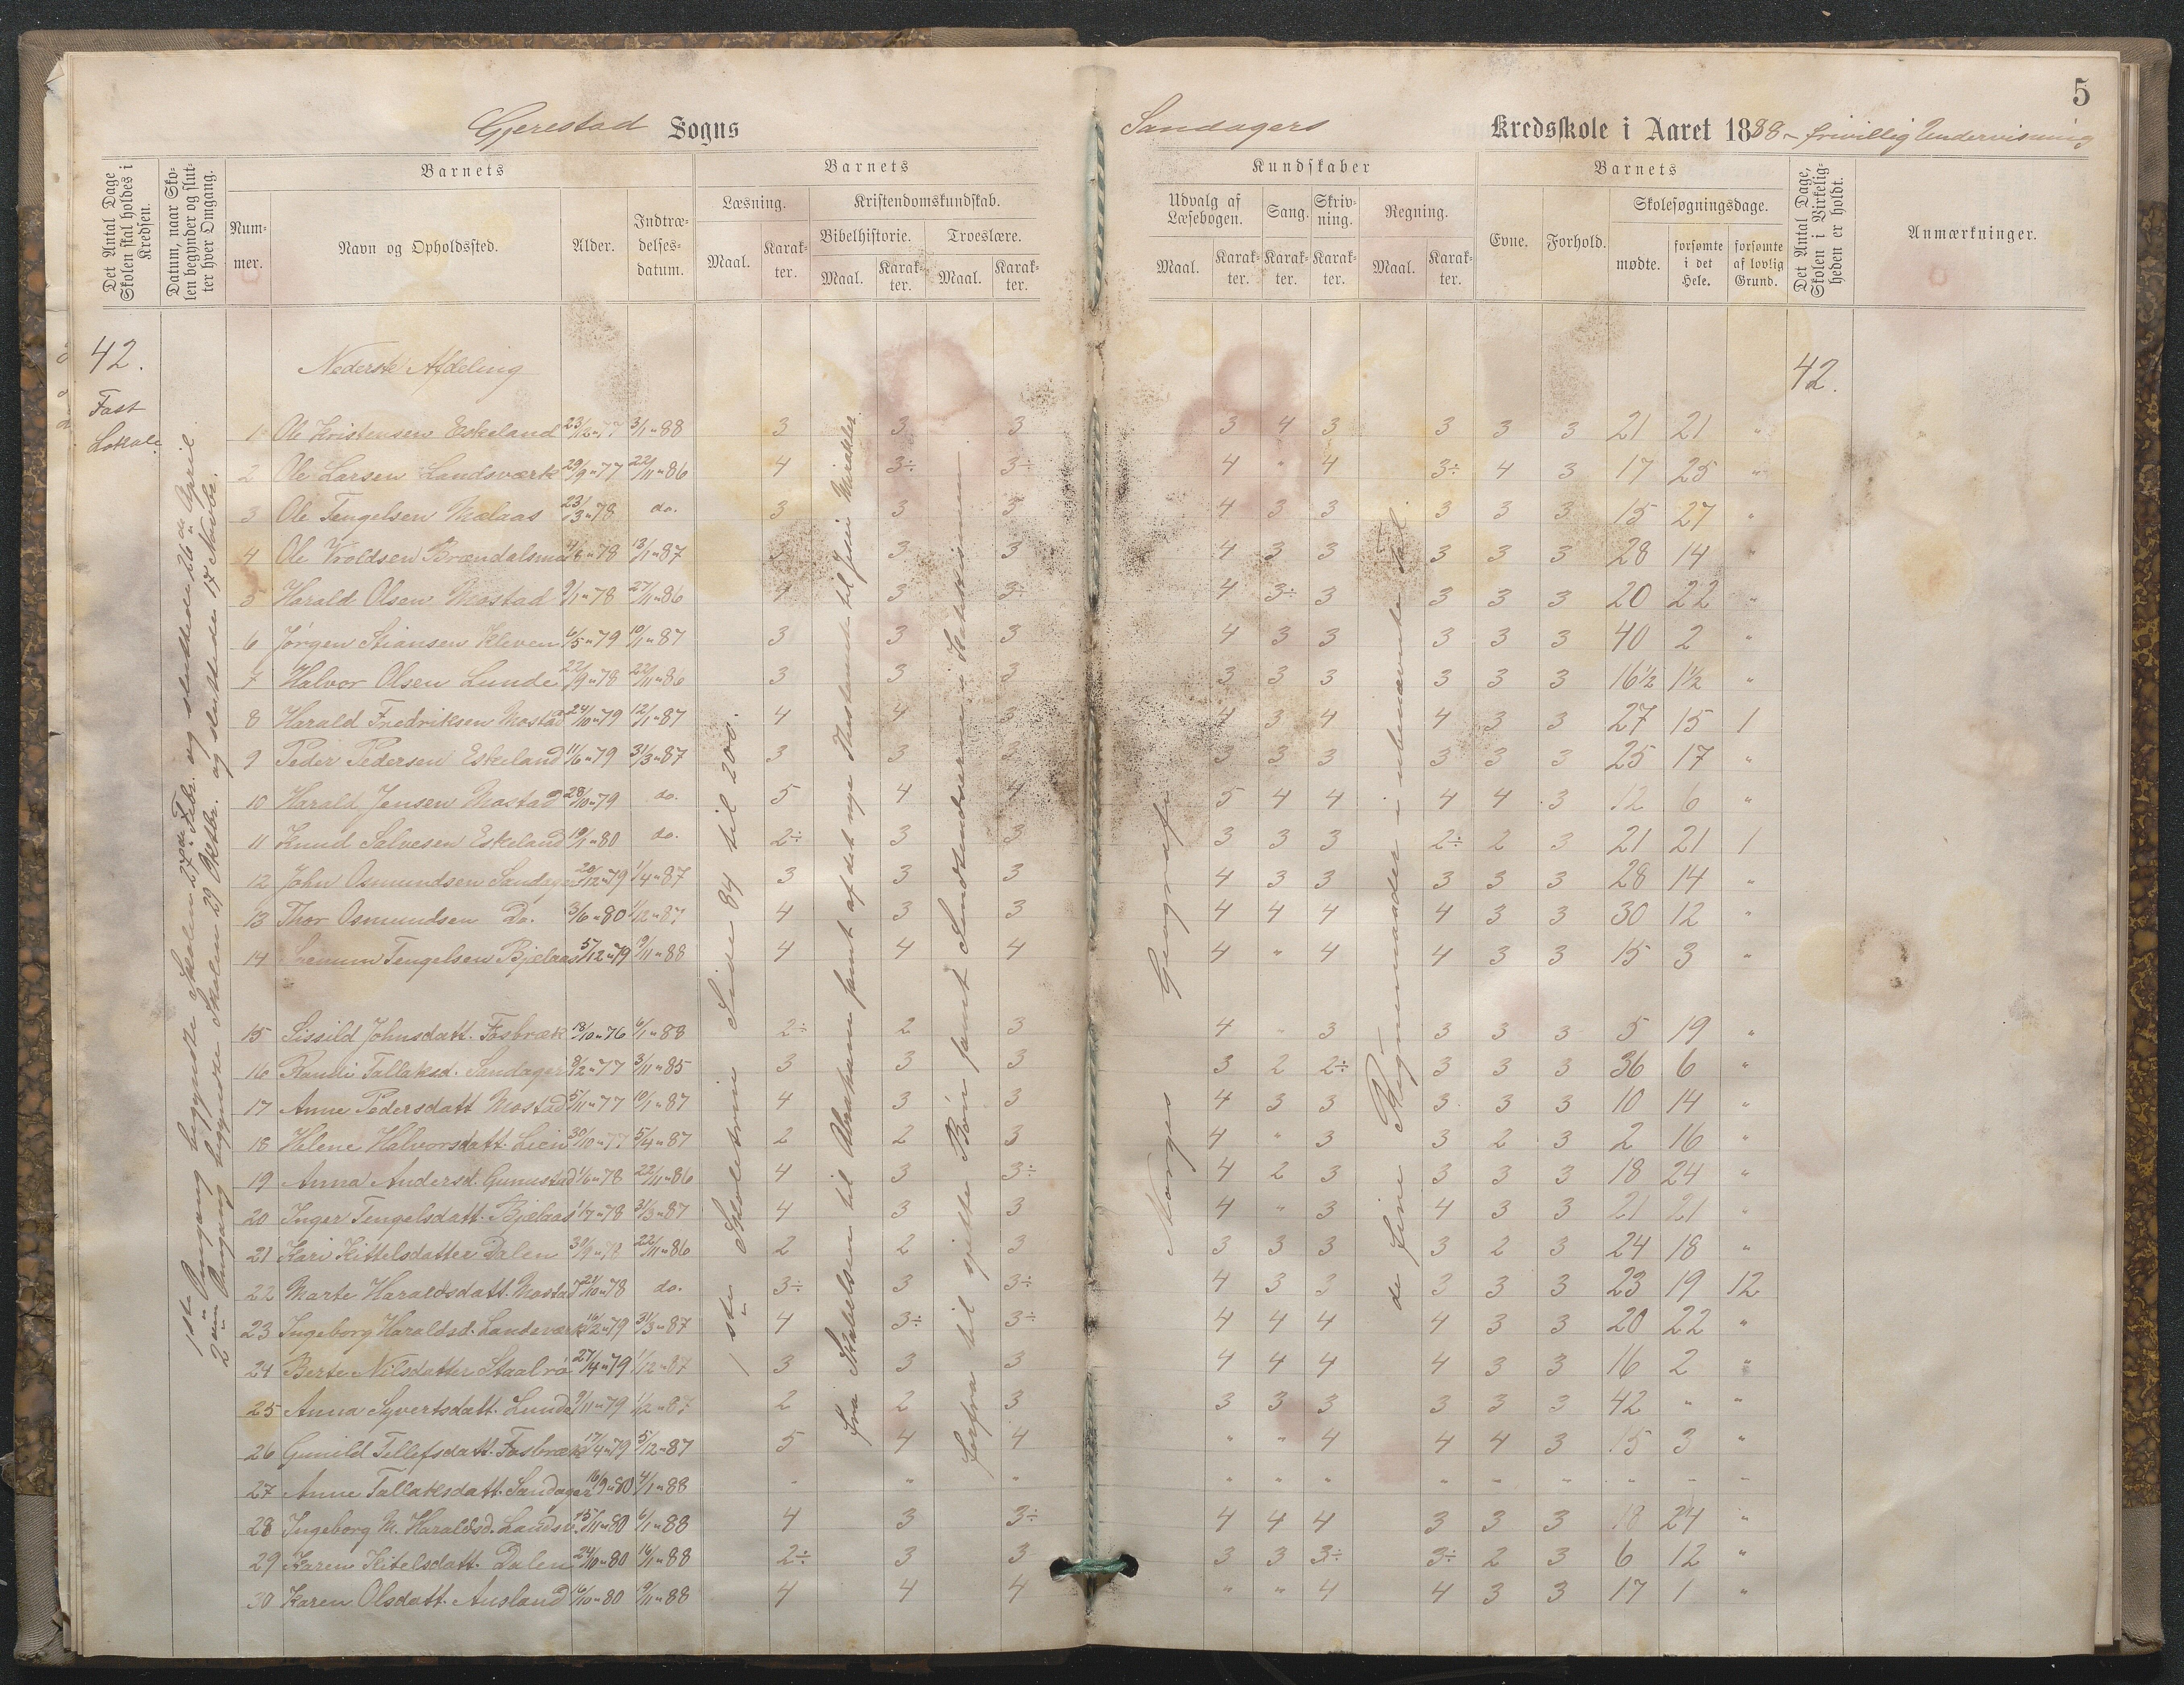 5
Gjerestad Sogns
Sandagers Kredsskole i Aaret 1888 - frivillig Undervisning
Det Antal Dage Skolen skal holdes i Kredsen.
Datum, naar Skolen begynder og slutter hver Omgang.
Barnets
Nummer.
Navn og Opholdssted.
Alder.
Indtrædelsesdatum.
Barnets
Læsning.
Maal.
Karakter.
Kristendomskundskab.
Bibelhistorie.
Maal.
Karakter.
Troeslære.
Maal.
Karakter.
Kundskaber
Udvalg af Læsebogen.
Maal.
Karakter.
Sang.
Karakter.
Skrivning.
Karakter.
Regning.
Maal.
Karakter.
Barnets
Evne.
Forhold.
Skolesøgningsdage.
mødte.
forsømte i det Hele.
forsømte af lovlig Grund.
Det Antal Dage, Skolen i Virkeligheden er holdt.
Anmærkninger.
42.
Fast
Lokale.
1ste Omgang begyndte Skolen 27de Febr. og sluttede den 26de April.
2den Omgang begyndte Skolen 29 Oktbr. og sluttede 17 Novbr.
1ste Skoletrin Side 84 til 200.
Fra Skabelsen til Abraham samt af det nye Testamente til Jesu Mirakler
Forfra til sjette Bøn samt Sendetimotverne i Katekismen
Norges Geografi
de fire Regnemaader i ubenævnte Tal
Nederste Afdeling
42.
1 Ole Kristensen Eskeland 23/12 " 77 3/1 " 88 3 3 3 3 4 3 3 3 3 21 21 "
2 Ole Larsen Landsværk 29/9 " 77 22/11 " 86 4 3÷ 3÷ 4 " 4 3÷ 4 3 17 25 "
3 Ole Tengelsen Mælaas 23/3 " 78 do. 3 3 3 4 3 3 3 3 3 15 27 "
4 Ole Vroldsen Brændalsmo 11/6 " 78 13/1 " 87 3 3 3 4 3 3 3 3 3 28 14 "
5 Harald Olsen Mostad 9/1 " 78 27/11 " 86 4 3 3÷ 4 3÷ 3 3 3 3 20 22 "
6 Jørgen Stiansen Kleven 6/5 " 79 10/1 " 87 3 3 3 4 3 3 3 3 3 40 2 "
7 Halvor Olsen Lunde 22/9 " 78 22/11 " 86 3 3 3 3 3 3 3 3 3 16½ 1½ "
8 Harald Fredriksen Mostad 24/10 " 79 12/1 " 87 4 4 3 4 3 4 4 3 3 27 15 1
9 Peder Pedersen Eskeland 11/6 " 79 31/3 " 87 3 3 3 3 3 3 3 3 3 25 17 "
10 Harald Jensen Mostad 28/10 " 79 do. 5 4 4 5 4 4 4 4 3 12 6 "
11 Knud Salvesen Eskeland 19/1 " 80 do. 2÷ 3 3 3 3 3 2÷ 2 3 21 21 1
12 John Osmundsen Sandager 20/12 " 79 1/4 " 87 3 3 3 4 3 3 3 3 3 28 14 "
13 Thor Osmundsen Do. 3/6 " 80 1/12 " 87 4 3 3 4 4 4 4 3 3 30 12 "
14 Tengelsen Bjelaas 5/12 " 79 19/11 " 88 4 4 4 4 " 4 4 3 3 15 3 "
15 Sissild Johnsdatt. Fosbræk 18/10 " 76 6/1 " 88 2÷ 2 3 4 " 3 3 3 3 5 19 "
16 Randi Tallaksd. Sandager 8/2 " 77 3/11 " 85 3 3 3 3 2 2÷ 3 3 3 36 6 "
17 Anne Pedersdatt Mostad 5/11 " 77 10/1 " 87 4 3 3 4 3 3 3 3 3 10 14 "
18 Helene Halvorsdatt. Lien 30/10 " 77 5/4 " 87 2 2 3 4 " 3 3 2 3 2 16 "
19 Anna Andersd. Gunustad 1/6 " 78 22/11 " 86 4 3 3÷ 4 2 3 3 3 3 18 24 "
20 Inger Tengelsdatt. Bjelaas 1/7 " 78 31/3 " 87 4 3 3 4 " 3 4 3 3 21 21 "
21 Kari Kittelsdatter Dalen 30/9 " 78 22/11 " 86 2 2 3 3 3 3 3 2 3 24 18 "
22 Marte Haraldsdatt. Mostad 21/10 " 78 do. 3÷ 3 3÷ 4 3 3 3 3 3 23 19 12
23 Ingeborg Haraldsd. Landsværk 16/2 " 79 31/3 " 87 4 3÷ 3÷ 4 4 4 4 3 3 20 22 "
24 Berte Nilsdatter Staalrø 27/4 " 79 1/12 " 87 3 3 3 4 4 4 4 3 3 16 2 "
25 Anna Syvertsdatt. Lunde 9/11 " 79 1/2 " 87 2 2 3 3 3 3 3 3 3 42 " "
26 Gunild Tellefsdatt. Fosbræk 17/4 " 79 5/12 " 87 5 4 4 " " 4 4 4 3 15 3 "
27 Anne Tallaksdatt. Sandager 16/9 " 80 4/1 " 88 " " " " " " " " " " " "
28 Ingeborg M. Haraldsd. Landsv. 15/11 " 80 6/1 " 88 4 3 3÷ 4 4 4 3 3 3 18 24 "
29 Karen Kitelsdatt. Dalen 24/10 " 80 16/1 " 88 2÷ 3 3 3 3 3÷ 3÷ 2 3 6 12 "
30 Karen Olsdatt. Ausland 16/10 " 80 19/11 " 88 4 4 4 " " 4 4 3 3 17 1 "